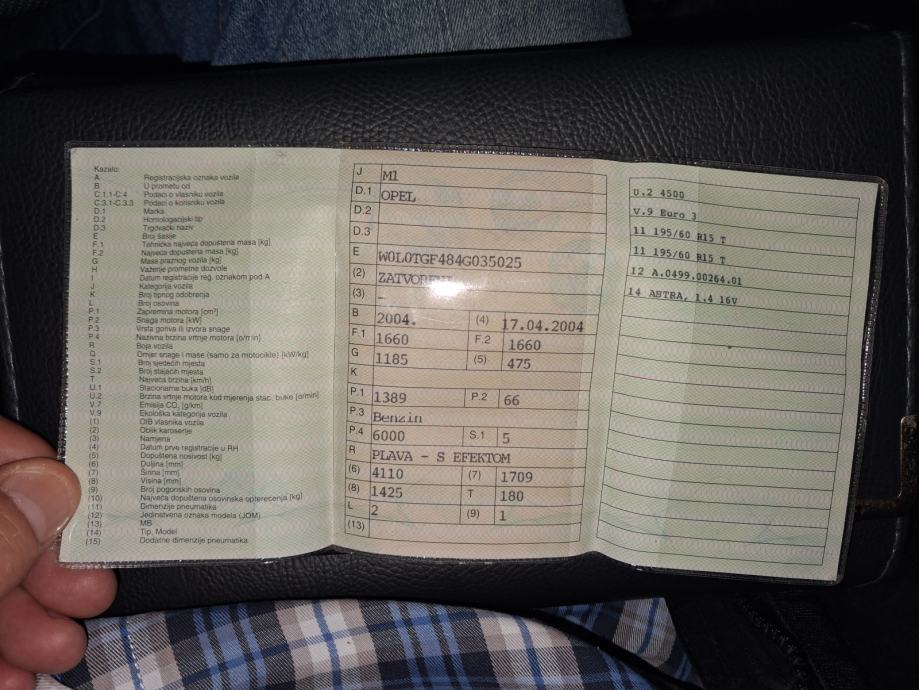 Kazalo:
A Registracijska oznaka vozila
B U prometu od
C.1.1-C.4 Podaci o vlasniku vozila
C.3.1-C.3.3 Podaci o korisniku vozila
D.1 Marka
D.2 Homologacijski tip
D.3 Trgovački naziv
E Broj šasije
F.1 Tehnička najveća dopuštena masa [kg]
F.2 Najveća dopuštena masa [kg]
G Masa praznog vozila [kg]
H Važenje prometne dozvole
I Datum registracije reg. oznakom pod A
J Kategorija vozila
K Broj tipnog odobrenja
L Broj osovina
P.1 Zapremina motora [cm³]
P.2 Snaga motora [kW]
P.3 Vrsta goriva ili izvora snage
P.4 Nazivna brzina vrtnje motora [o/min]
R Boja vozila
Q Omjer snage i mase (samo za motocikle) [kW/kg]
S.1 Broj sjedećih mjesta
S.2 Broj stajaćih mjesta
T Najveća brzina [km/h]
U.1 Stacionarna buka [dB]
U.2 Brzina vrtnje motora kod mjerenja stac. buke [o/min]
V.7 Emisija CO₂ [g/km]
V.9 Ekološka kategorija vozila
(1) OIB vlasnika vozila
(2) Oblik karoserije
(3) Namjena
(4) Datum prve registracije u RH
(5) Dopuštena nosivost [kg]
(6) Duljina [mm]
(7) Širina [mm]
(8) Visina [mm]
(9) Broj pogonskih osovina
(10) Najveća dopuštena osovinska opterećenja [kg]
(11) Dimenzije pneumatika
(12) Jedinstvena oznaka modela (JOM)
(13) MB
(14) Tip, Model
(15) Dodatne dimenzije pneumatika
J M1
D.1 OPEL
D.2
D.3
E W0L0TGF484G035025
(2) ZATVORENI
(3) –
B 2004. (4) 17.04.2004
F.1 1660 F.2 1660
G 1185 (5) 475
K
P.1 1389 P.2 66
P.3 Benzin
P.4 6000 S.1 5
R PLAVA - S EFEKTOM
(6) 4110 (7) 1709
(8) 1425 T 180
L 2 (9) 1
(13)
U.2 4500
V.9 Euro 3
11 195/60 R15 T
11 195/60 R15 T
12 A.0499.00264.01
14 ASTRA, 1.4 16V